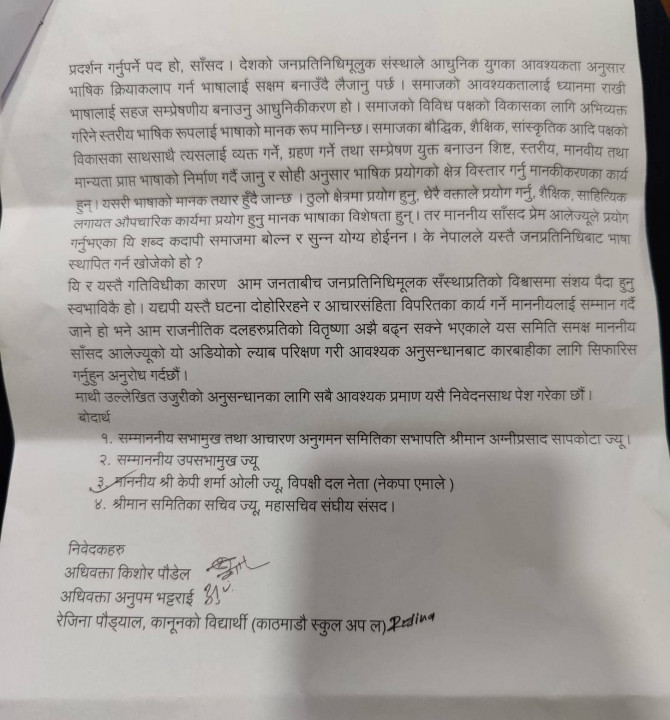 प्रदर्शन गर्नुपर्ने पद हो, साँसद । देशको जनप्रतिनिधिमूलुक संस्थाले आधुनिक युगका आवश्यकता अनुसार
भाषिक क्रियाकलाप गर्न भाषालाई सक्षम बनाउँदै लैजानु पर्छ । समाजको आवश्यकतालाई ध्यानमा राखी
भाषालाई सहज सम्प्रेषणीय बनाउनु आधुनिकीकरण हो । समाजको विविध पक्षको विकासका लागि अभिव्यक्त
गरिने स्तरीय भाषिक रूपलाई भाषाको मानक रूप मानिन्छ । समाजका बौद्धिक, शैक्षिक, सांस्कृतिक आदि पक्षको
विकासका साथसाथै त्यसलाई व्यक्त गर्ने, ग्रहण गर्ने तथा सम्प्रेषण युक्त बनाउन शिष्ट, स्तरीय, मानवीय तथा
मान्यता प्राप्त भाषाको निर्माण गर्दै जानु र सोही अनुसार भाषिक प्रयोगको क्षेत्र विस्तार गर्नु मानकीकरणका कार्य
हुन् । यसरी भाषाको मानक तयार हुँदै जान्छ । ठुलो क्षेत्रमा प्रयोग हुनु, धेरै वक्ताले प्रयोग गर्नु, शैक्षिक, साहित्यिक
लगायत औपचारिक कार्यमा प्रयोग हुनु मानक भाषाका विशेषता हुन् । तर माननीय साँसद प्रेम आलेज्यूले प्रयोग
गर्नुभएका यि शब्द कदापी समाजमा बोल्न र सुन्न योग्य होईनन । के नेपालले यस्तै जनप्रतिनिधिबाट भाषा
स्थापित गर्न खोजेको हो ?
यि र यस्तै गतिविधीका कारण आम जनताबीच जनप्रतिनिधिमूलक सँस्थाप्रतिको विश्वासमा संशय पैदा हुनु
स्वभाविकै हो । यद्यपी यस्तै घटना दोहोरिरहने र आचारसंहिता विपरितका कार्य गर्ने माननीयलाई सम्मान गर्दै
जाने हो भने आम राजनीतिक दलहरुप्रतिको वितृष्णा अझै बढ्न सक्ने भएकाले यस समिति समक्ष माननीय
साँसद आलेज्यूको यो अडियोको ल्याब परिक्षण गरी आवश्यक अनुसन्धानबाट कारबाहीका लागि सिफारिस
गर्नुहुन अनुरोध गर्दछौं ।
माथी उल्लेखित उजुरीको अनुसन्धानका लागि सबै आवश्यक प्रमाण यसै निवेदनसाथ पेश गरेका छौं ।
बोदार्थ
१. सम्माननीय सभामुख तथा आचारण अनुगमन समितिका सभापति श्रीमान अग्नीप्रसाद सापकोटा ज्यू ।
२. सम्माननीय उपसभामुख ज्यू
३. माननीय श्री केपी शर्मा ओली ज्यू, विपक्षी दल नेता (नेकपा एमाले )
४. श्रीमान समितिका सचिव ज्यू, महासचिव संघीय संसद ।
निवेदकहरु
अधिवक्ता किशोर पौडेल
अधिवक्ता अनुपम भट्टराई
रेजिना पौड्याल, कानूनको विद्यार्थी (काठमाडौ स्कुल अप ल) Redina